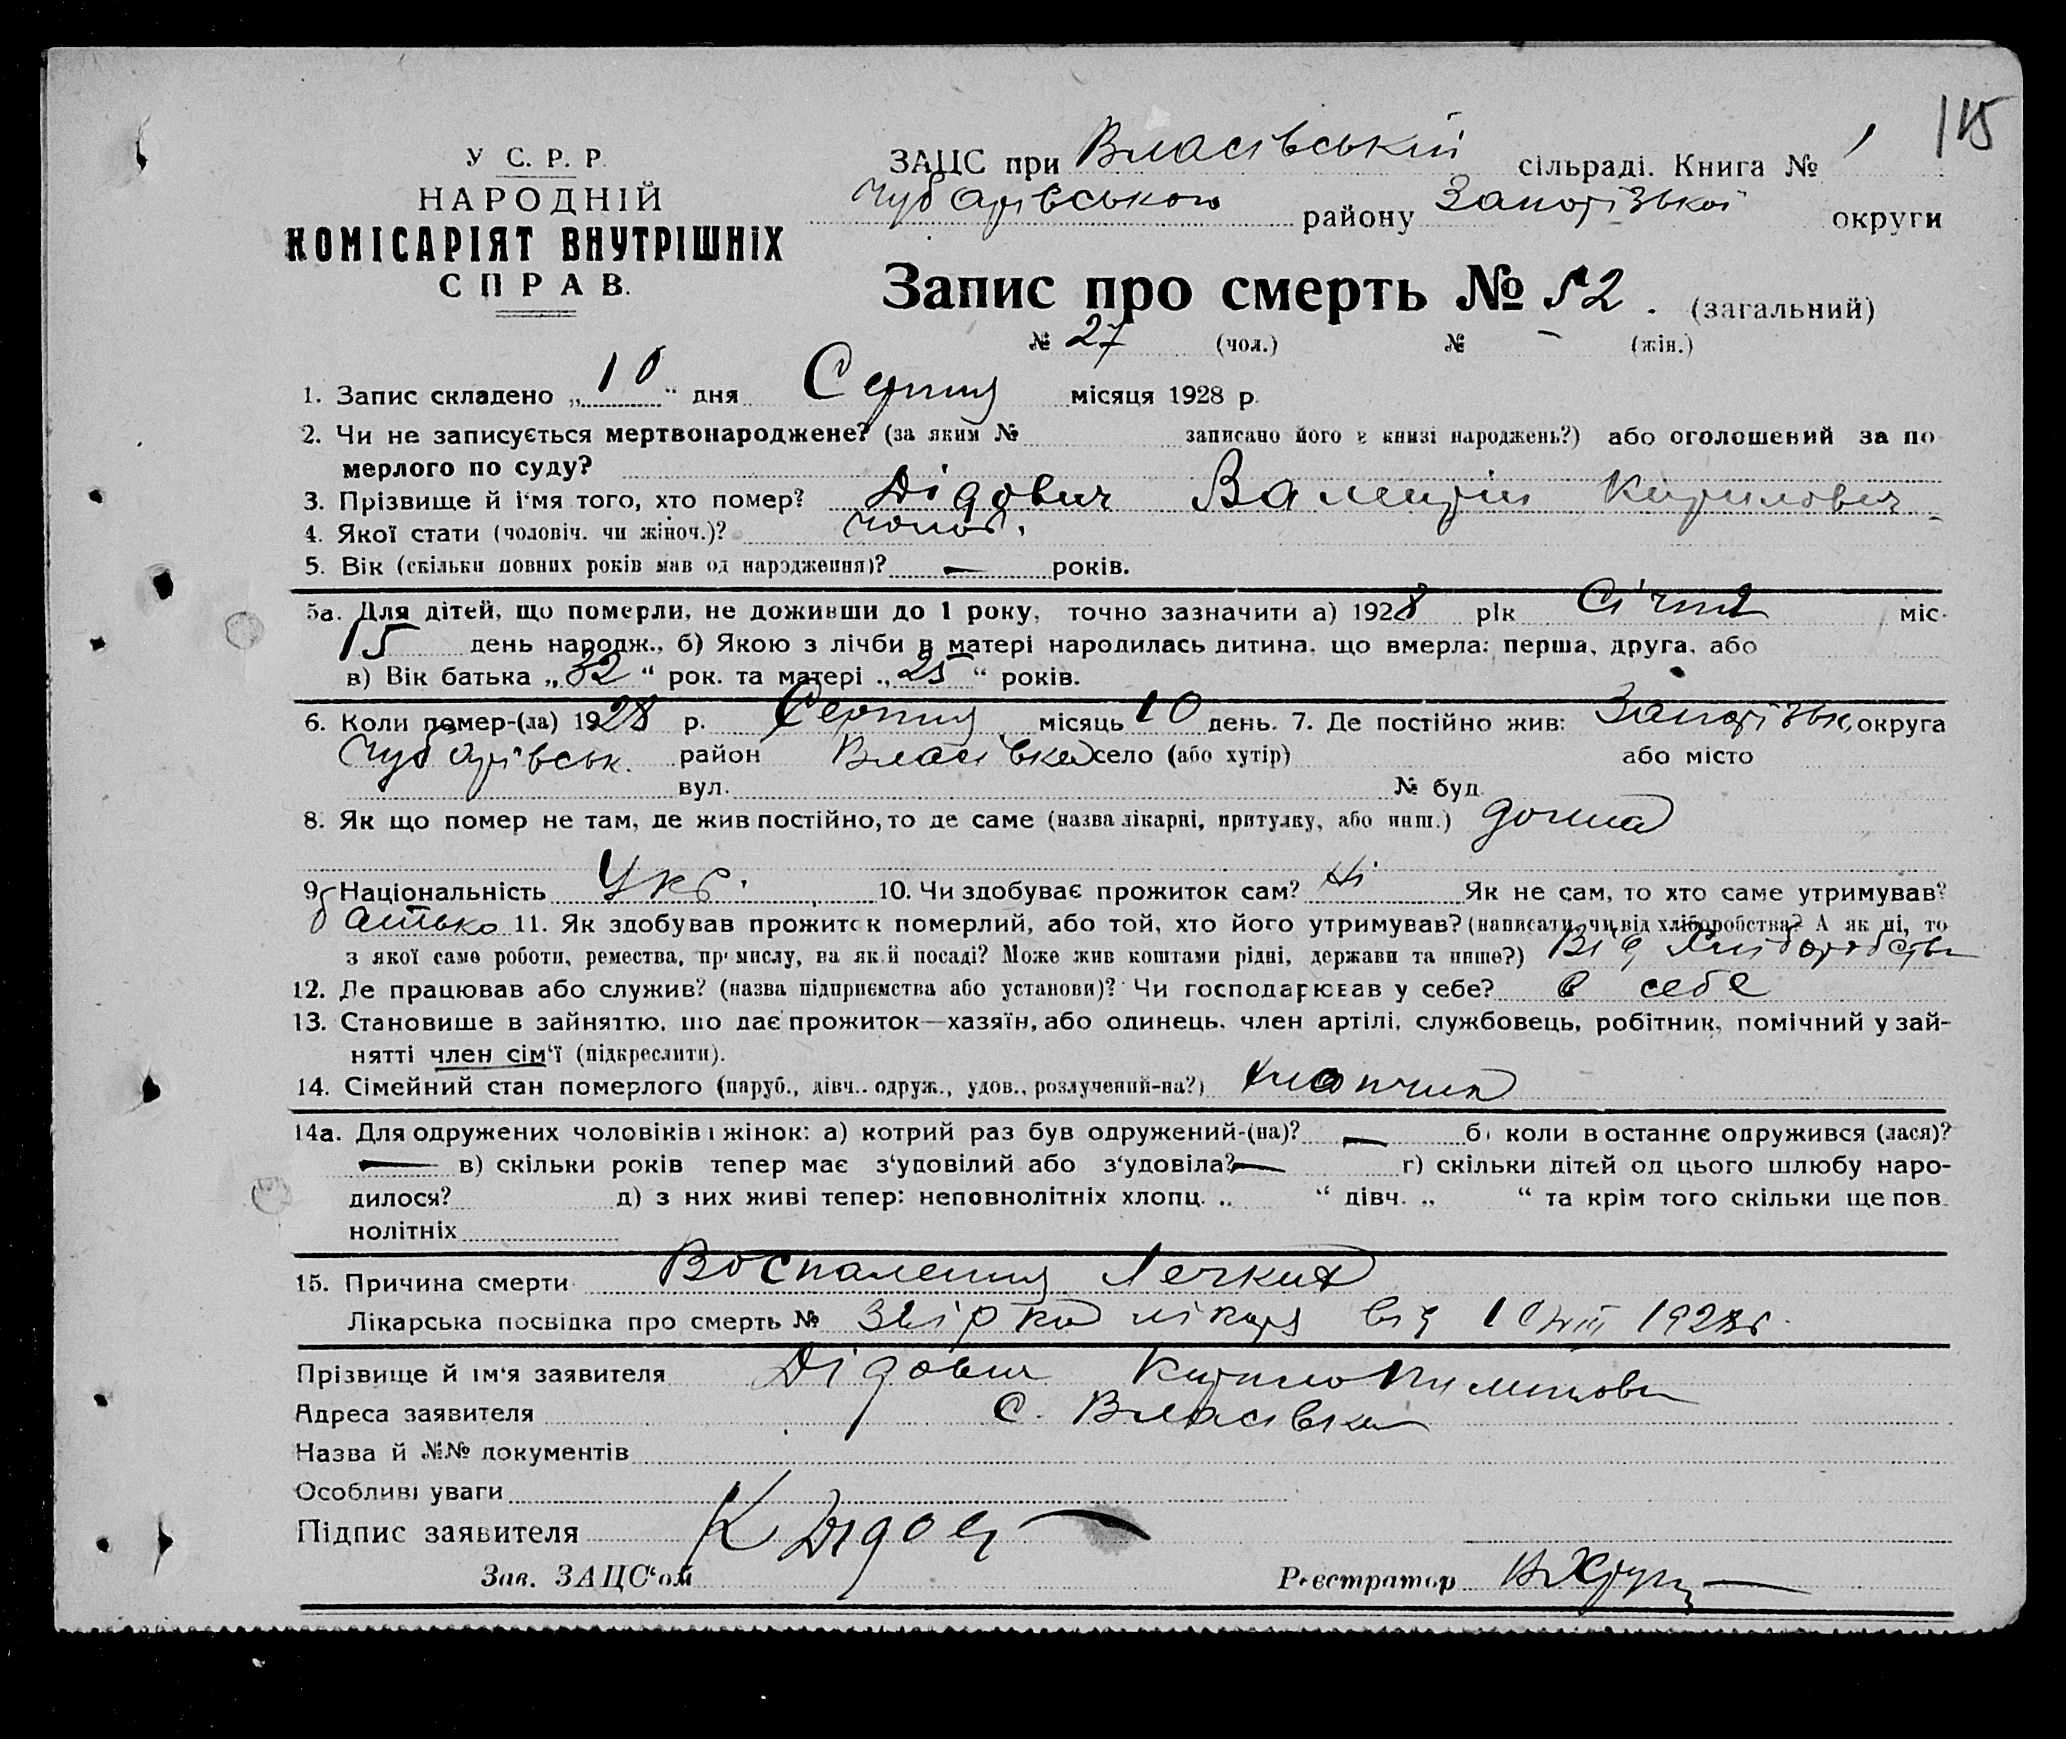 115
У С. Р. Р.
НАРОДНІЙ
КОМІСАРІЯТ ВНУТРІШНІХ
СПРАВ.
ЗАЦС при Власівській сільраді. Книга № 1
Чубарівського району Запорізької округи
Запис про смерть № 52. (загальний)
№ 27 (чол.) № – (жін.)
1. Запис складено „10“ дня Серпня місяця 1928 р.
2. Чи не записується мертвонароджене? (за яким № записано його в книзі народжень?) або оголошений за по
мерлого по суду?
3. Прізвище й і‘мя того, хто помер? Дідович Валентін Кирилович
4. Якої стати (чоловіч. чи жіноч.)? чолов.
5. Вік (скільки повних років мав од народження)? — років.
5а. Для дітей, що померли, не доживши до 1 року, точно зазначити а) 1928 рік Січня міс.
15 день народж., б) Якою з лічби в матері народилась дитина, що вмерла: перша, друга, або
в) Вік батька „32“ рок. та матері „25“ років.
6. Коли помер-(ла) 1928 р. Серпня місяць 10 день. 7. Де постійно жив: Запорізьк. округа
Чубарівськ. район Власівка село (або хутір) або місто
вул. № буд.
8. Як що помер не там, де жив постійно, то де саме (назва лікарні, притулку, або инш.) дома
9. Національність Укр. 10. Чи здобуває прожиток сам? Ні Як не сам, то хто саме утримував?
батько 11. Як здобував прожиток померлий, або той, хто його утримував? (написати, чи від хліборобства? А як ні, то
з якої саме роботи, ремества, промислу, на якій посаді? Може жив коштами рідні, держави та инше?) Від Хліборобства
12. Де працював або служив? (назва підприємства або установи)? Чи господарював у себе? в себе
13. Становище в зайняттю, що дає прожиток—хазяїн, або одинець, член артілі, службовець, робітник, помічний у зай-
нятті член сім‘ї (підкреслити).
14. Сімейний стан померлого (паруб., дівч.. одруж., удов., розлучений-на?) хлопчик
14а. Для одружених чоловіків і жінок: а) котрий раз був одружений-(на)? — б) коли в останнє одружився (лася)?
— в) скільки років тепер має з‘удовілий або з‘удовіла? — г) скільки дітей од цього шлюбу наро-
дилося? д) з них живі тепер: неповнолітніх хлопц. „ “ дівч. „ “ та крім того скільки ще пов.
нолітніх
15. Причина смерти Воспаления Легких
Лікарська посвідка про смерть № лікаря від 10/VIII 1928 г.
Прізвище й ім‘я заявителя Дідович Кирило
Адреса заявителя с. Власівка
Назва й №№ документів
Особливі уваги
Підпис заявителя К Дідов
Зав. ЗАЦС‘ом Реєстратор